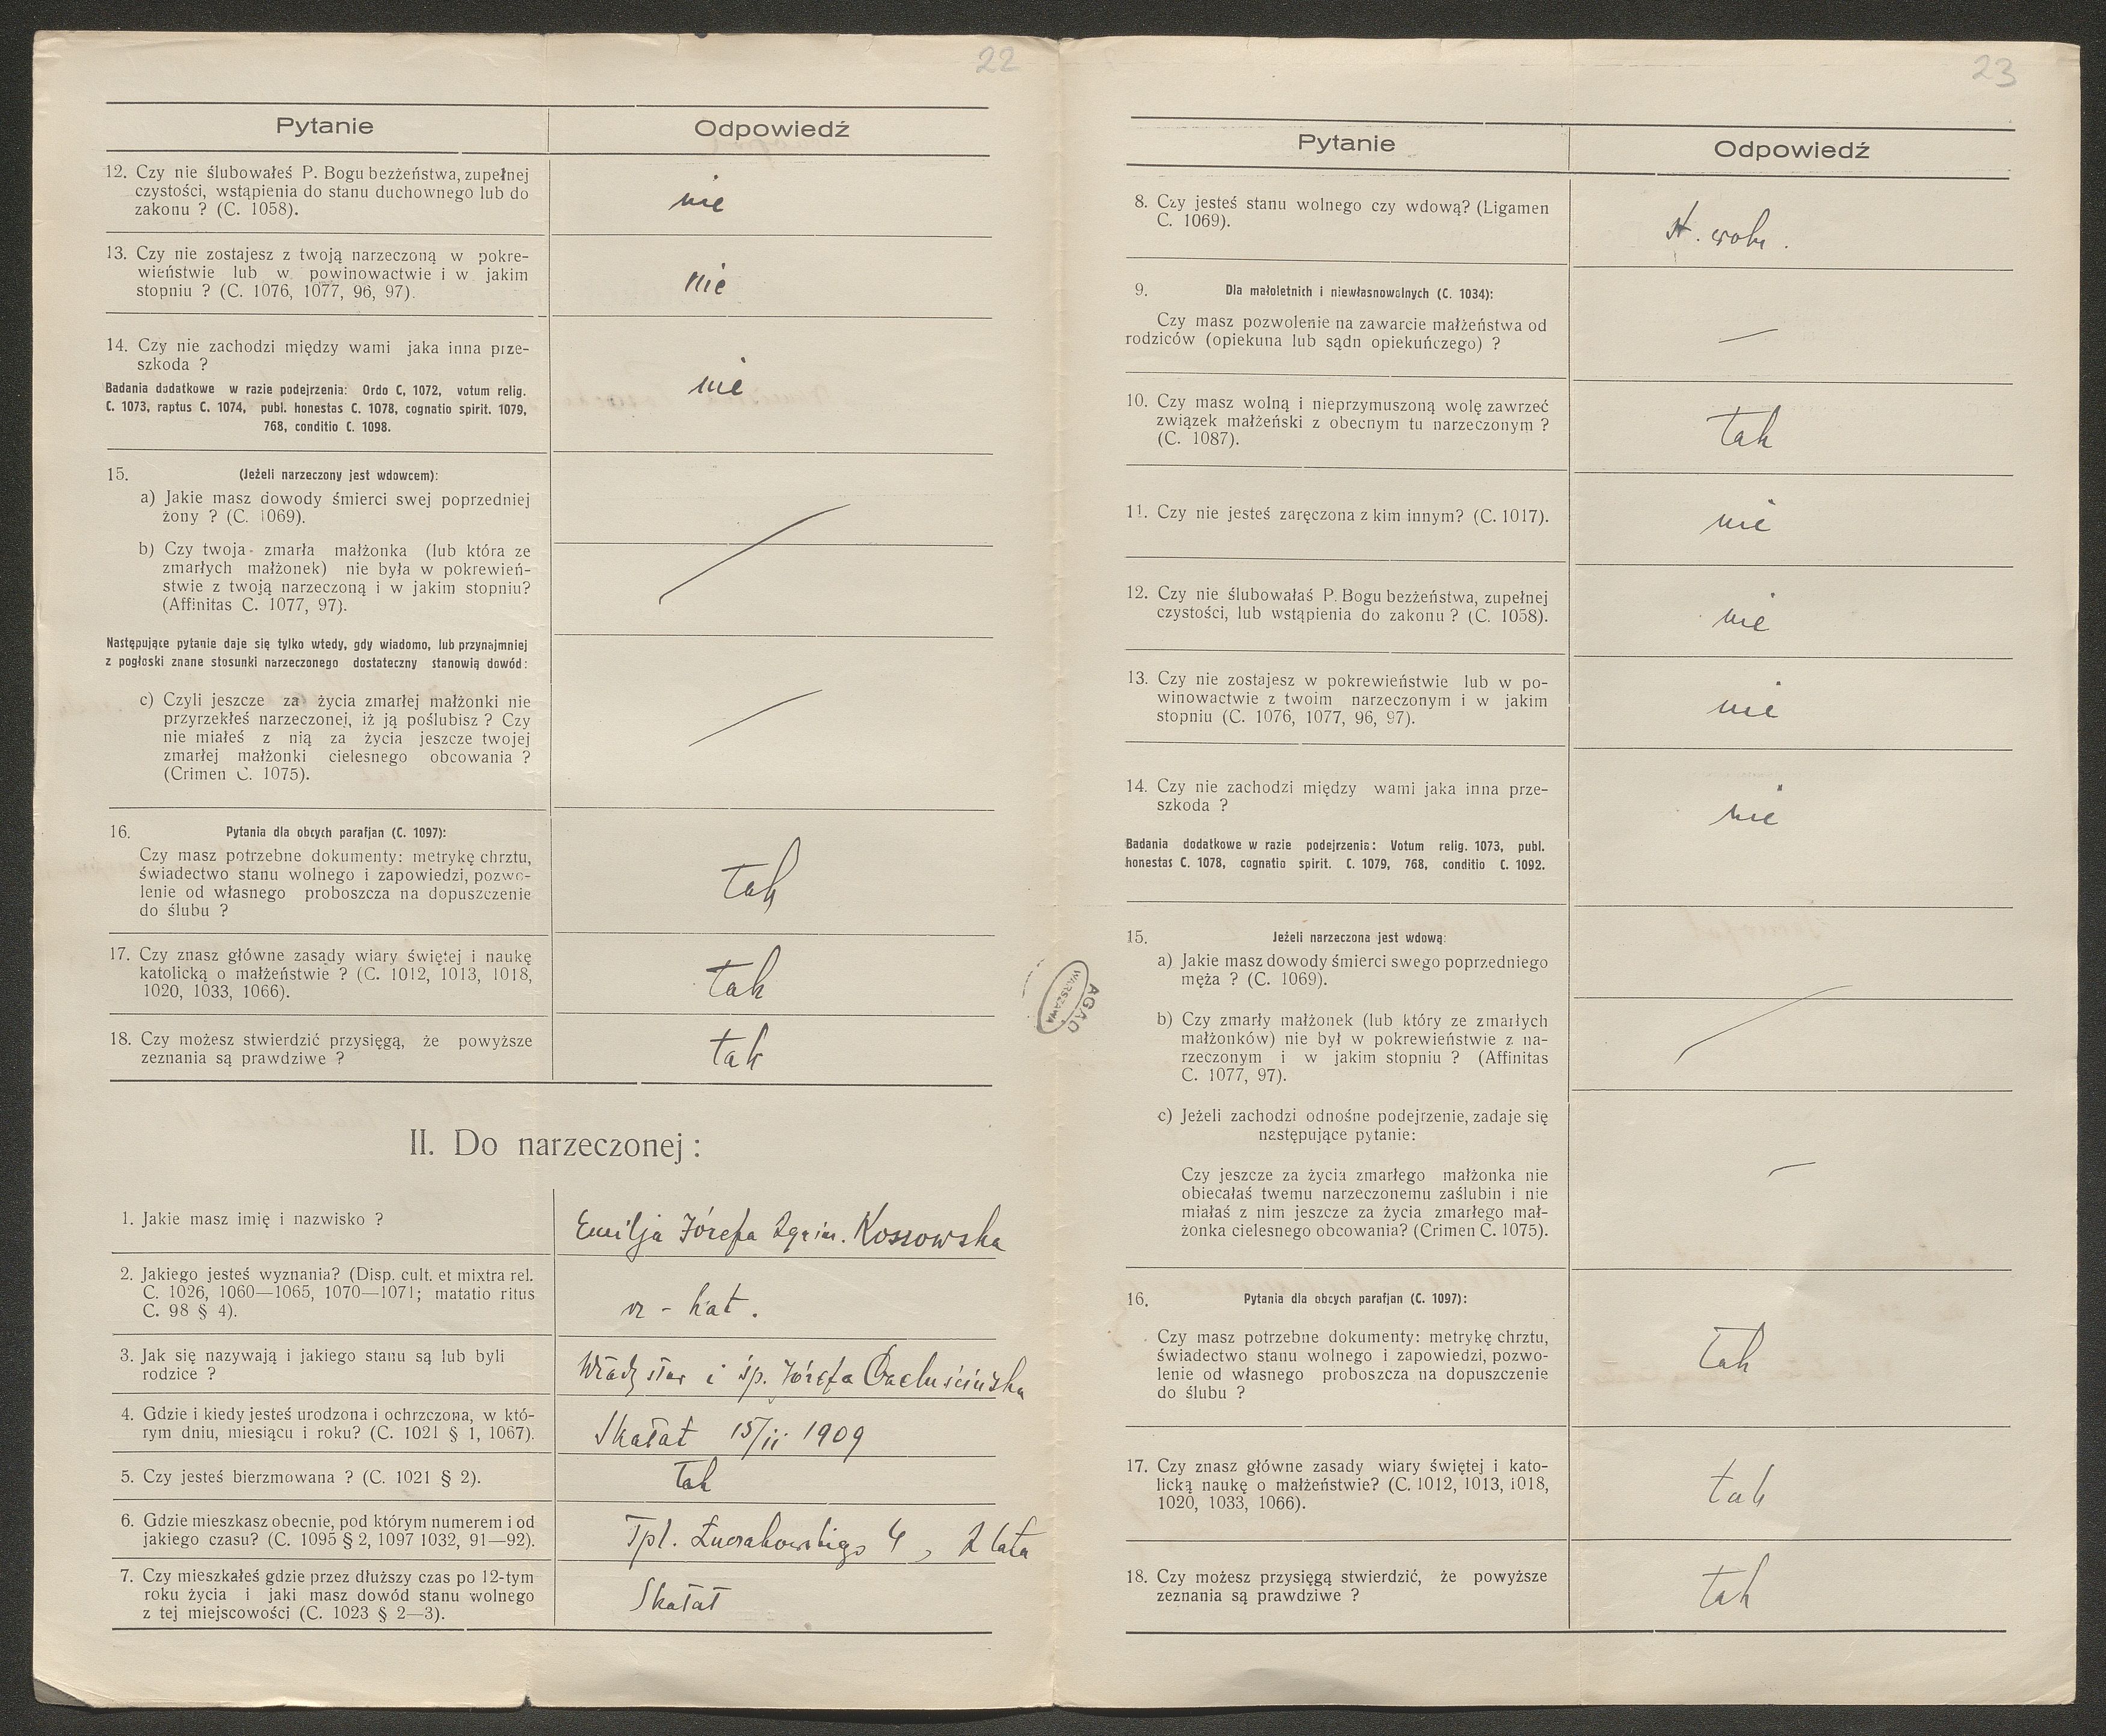 22
Pytanie
Odpowiedź
12. Czy nie ślubowałeś P. Bogu bezżeństwa, zupełnej
czystości, wstąpienia do stanu duchownego lub do
zakonu ? (C. 1058).
nie
13. Czy nie zostajesz z twoją narzeczoną w pokre-
wieństwie lub w powinowactwie i w jakim
stopniu ? (C. 1076, 1077, 96, 97).
nie
14. Czy nie zachodzi między wami jaka inna prze-
szkoda ?
Badania dodatkowe w razie podejrzenia: Ordo C, 1072, votum relig.
C. 1073, raptus C. 1074, publ. honestas C. 1078, cognatio spirit. 1079,
768, conditio C. 1098.
nie
15. (Jeżeli narzeczony jest wdowcem):
a) Jakie masz dowody śmierci swej poprzedniej
żony ? (C. 1069).
b) Czy twoja zmarła małżonka (lub która ze
zmarłych małżonek) nie była w pokrewień-
stwie z twoją narzeczoną i w jakim stopniu?
(Affinitas C. 1077, 97).
Następujące pytanie daje się tylko wtedy, gdy wiadomo, lub przynajmniej
z pogłoski znane stosunki narzeczonego dostateczny stanowią dowód:
c) Czyli jeszcze za życia zmarłej małżonki nie
przyrzekłeś narzeczonej, iż ją poślubisz ? Czy
nie miałeś z nią za życia jeszcze twojej
zmarłej małżonki cielesnego obcowania ?
(Crimen C. 1075).
16. Pytania dla obcych parafjan (C. 1097):
Czy masz potrzebne dokumenty: metrykę chrztu,
świadectwo stanu wolnego i zapowiedzi, pozwo-
lenie od własnego proboszcza na dopuszczenie
do ślubu ?
tak
17. Czy znasz główne zasady wiary świętej i naukę
katolicką o małżeństwie ? (C. 1012, 1013, 1018,
1020, 1033, 1066).
tak
18. Czy możesz stwierdzić przysięgą, że powyższe
zeznania są prawdziwe ?
tak
II. Do narzeczonej :
1. Jakie masz imię i nazwisko ?
Emilja Józefa Kossowska
2. Jakiego jesteś wyznania? (Disp. cult. et mixtra rel.
C. 1026, 1060—1065, 1070—1071; matatio ritus
C. 98 § 4).
rz - kat.
3. Jak się nazywają i jakiego stanu są lub byli
rodzice ?
i śp. Józefa Czeluścińska
4. Gdzie i kiedy jesteś urodzona i ochrzczona, w któ-
rym dniu, miesiącu i roku? (C. 1021 § 1, 1067).
Skałat 15/ii 1909
5. Czy jesteś bierzmowana ? (C. 1021 § 2).
Tak
6. Gdzie mieszkasz obecnie, pod którym numerem i od
jakiego czasu? (C. 1095 § 2, 1097 1032, 91—92).
Tpl. 4, 2 lata
7. Czy mieszkałeś gdzie przez dłuższy czas po 12-tym
roku życia i jaki masz dowód stanu wolnego
z tej miejscowości (C. 1023 § 2—3).
Skałat
AGAD
WARSZAWA
23
Pytanie
Odpowiedź
8. Czy jesteś stanu wolnego czy wdową? (Ligamen
C. 1069).
st. woln.
9. Dla małoletnich i niewłasnowolnych (C. 1034):
Czy masz pozwolenie na zawarcie małżeństwa od
rodziców (opiekuna lub sądn opiekuńczego) ?
10. Czy masz wolną i nieprzymuszoną wolę zawrzeć
związek małżeński z obecnym tu narzeczonym ?
(C. 1087).
tak
11. Czy nie jesteś zaręczona z kim innym? (C. 1017).
nie
12. Czy nie ślubowałaś P. Bogu bezżeństwa, zupełnej
czystości, lub wstąpienia do zakonu ? (C. 1058).
nie
13. Czy nie zostajesz w pokrewieństwie lub w po-
winowactwie z twoim narzeczonym i w jakim
stopniu (C. 1076, 1077, 96, 97).
nie
14. Czy nie zachodzi między wami jaka inna prze-
szkoda ?
nie
Badania dodatkowe w razie podejrzenia: Votum relig. 1073, publ.
honestas C. 1078, cognatio spirit. C. 1079, 768, conditio C. 1092.
15. Jeżeli narzeczona jest wdową:
a) Jakie masz dowody śmierci swego poprzedniego
męża ? (C. 1069).
b) Czy zmarły małżonek (lub który ze zmarłych
małżonków) nie był w pokrewieństwie z na-
rzeczonym i w jakim stopniu ? (Affinitas
C. 1077, 97).
c) Jeżeli zachodzi odnośne podejrzenie, zadaje się
następujące pytanie:
Czy jeszcze za życia zmarłego małżonka nie
obiecałaś twemu narzeczonemu zaślubin i nie
miałaś z nim jeszcze za życia zmarłego mał-
żonka cielesnego obcowania? (Crimen C. 1075).
16. Pytania dla obcych parafjan (C. 1097):
Czy masz potrzebne dokumenty: metrykę chrztu,
świadectwo stanu wolnego i zapowiedzi, pozwo-
lenie od własnego proboszcza na dopuszczenie
do ślubu ?
tak
17. Czy znasz główne zasady wiary świętej i kato-
licką naukę o małżeństwie? (C. 1012, 1013, 1018,
1020, 1033, 1066).
tak
18. Czy możesz przysięgą stwierdzić, że powyższe
zeznania są prawdziwe ?
tak